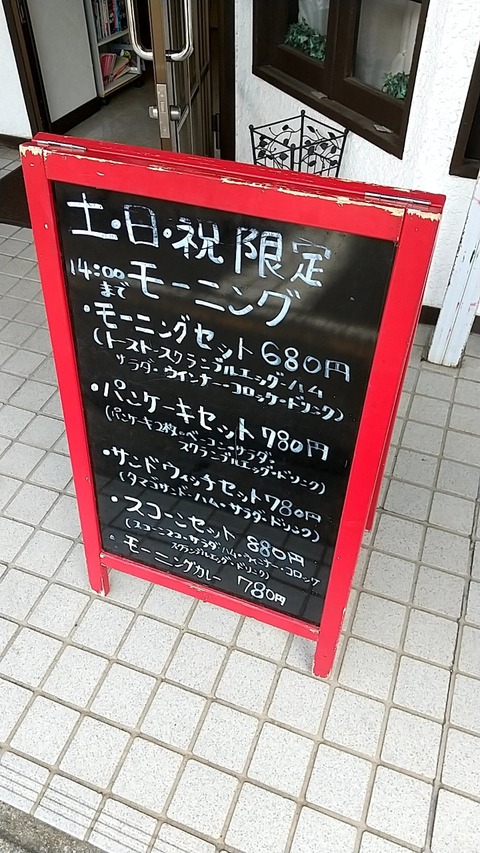 土・日・祝 限定
14:00まで モーニング
・モーニングセット 680円
(トースト・スクランブルエッグ・ハム
サラダ・ウインナー・コロッケ・ドリンク)
・パンケーキセット 780円
(パンケーキ2枚・ベーコン・サラダ・
スクランブルエッグ・ドリンク)
・サンドウィッチセット 780円
(タマゴサンド・ハム・サラダ・ドリンク)
・スコーンセット 880円
(スコーン2コ・サラダ・ハム・ウィンナー・コロッケ
スクランブルエッグ・ドリンク)
・モーニングカレー 780円